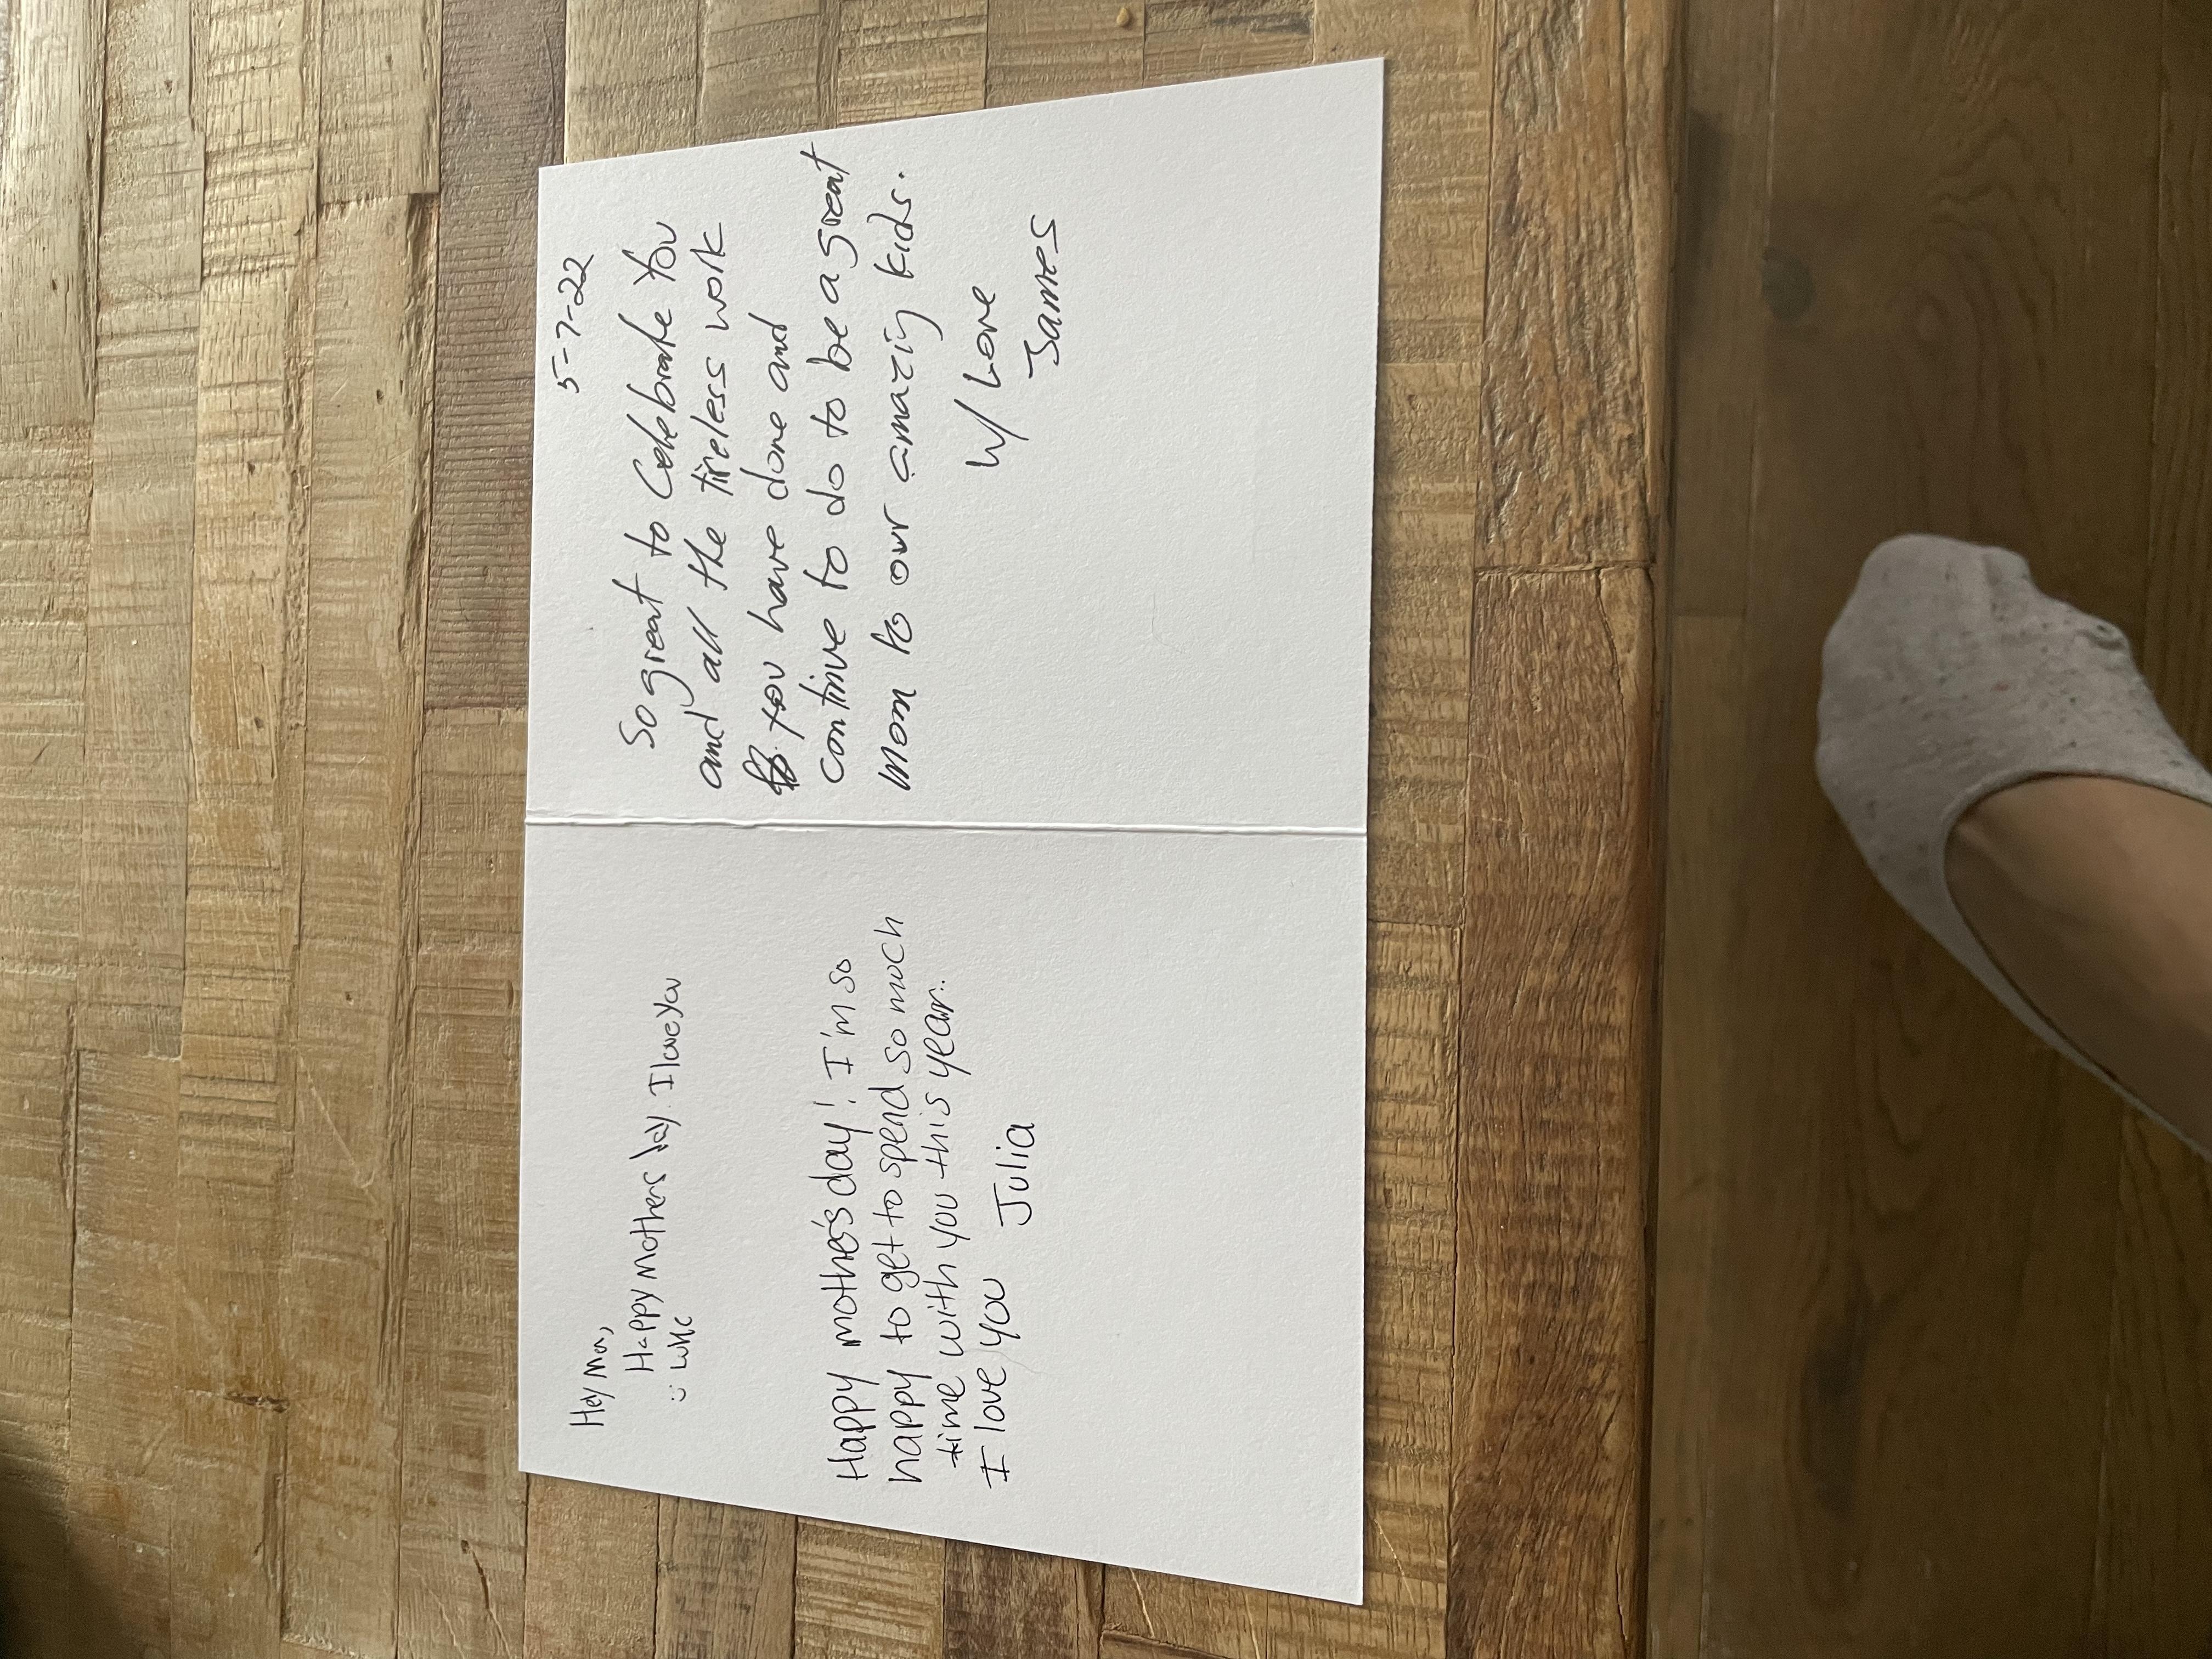 Hey Mom,
Happy Mothers Day I love you
:)
Happy mother's day! I'm so
happy to get to spend so much
time with you this year.
I love you Julia
5-7-22
So great to Celebrate You
and all the tireless work
you have done and
continue to do to be a great
mom to our amazing kids.
W/ Love
James